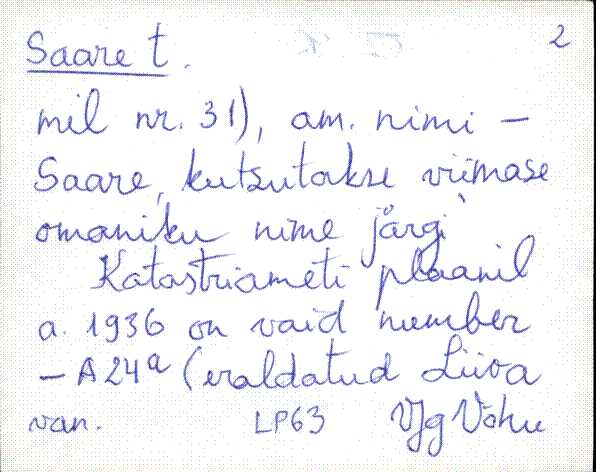 Saare t. 2
mil nr. 31), am. nimi -
Saare, kutsutakse viimase
omaniku nime järgi
Katastriameti plaanil
a. 1936 on vaid number
- A 24a (eraldatud Liiva
van. LP63 Vjg Võhu